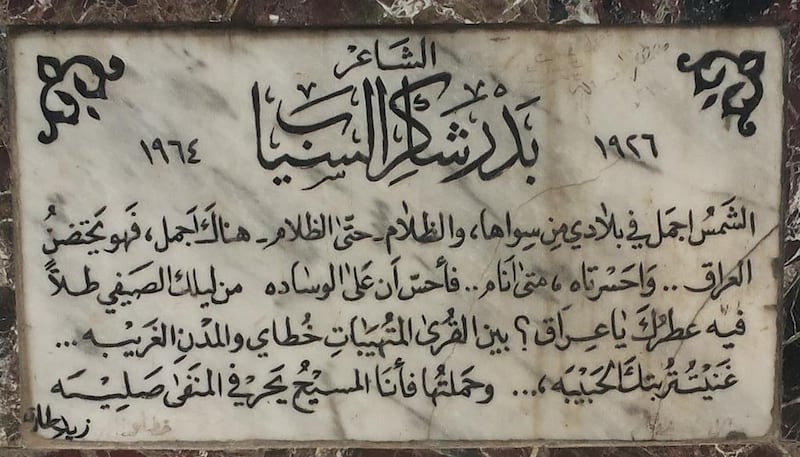 الشَاعرْ
بَدْر شَاكِر السَياب
١٩٢٦ ١٩٦٤
الشَمسُ اجمَل في بلادي مِن سِواها، والظلَام - حتىٰ الظلَام - هناكَ اَجمل، فَهو يَحتضنُ
العراق .. وَاحَسْرتاه، متىٰ اَنام .. فأحسّ اَن عَلىٰ الوسَاده من ليلك الصَيفي طلاً
فيه عطرُكَ يَا عِراق؟ بين القُرىٰ المتُهيَباتِ خُطاي والمدْنِ الغَريبه ...
غنَيْتُ تُربتكَ الحَبيبَه،... وحمَلتُها فأنَا المسيحُ يَجرّ في المنَفىٰ صَليبَه
زياد طارق